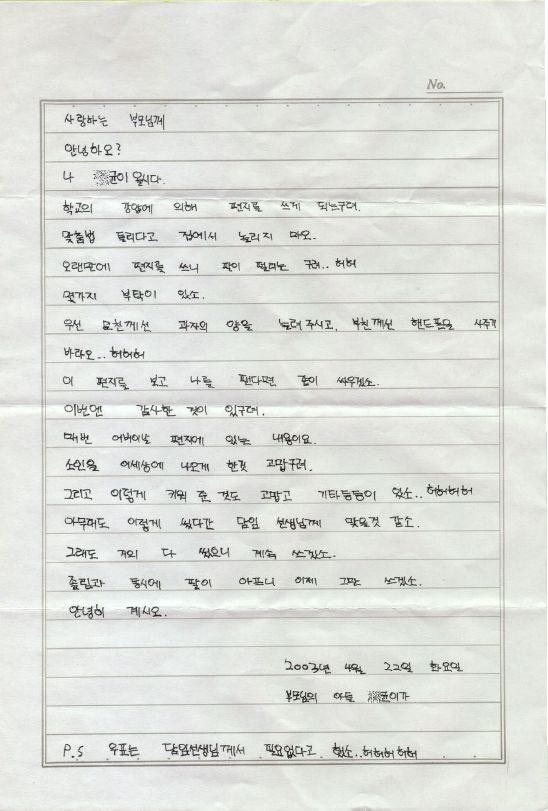 No.
사랑하는 부모님께
안녕하오?
나 균이 올시다.
학교의 강압에 의해 편지를 쓰게 되는구려.
맞춤법 틀리다고 집에서 놀리지 마오.
오랜만에 편지를 쓰니 팔이 떨리는 구려..허허
몇가지 부탁이 있소.
우선 모친께선 과자의 양을 늘려주시고, 부친께선 핸드폰을 사주기
바라오..허허허
이 편지를 보고 나를 팬다면 같이 싸우겠소.
이번엔 감사한 것이 있구려.
매번 어버이날 편지에 있는 내용이요.
소인을 이세상에 나오게 한것 고맙구려.
그리고 이렇게 키워 준 것도 고맙고 기타등등이 있소..허허허허
아무래도 이렇게 썼다간 담임 선생님께 맞을것 같소.
그래도 거의 다 썼으니 계속 쓰겠소..
졸림과 동시에 팔이 아프니 이제 그만 쓰겠소.
안녕히 계시오.
2003년 4월 22일 화요일
부모님의 아들 균이가
P.S 우표는 담임선생님께서 필요없다고 했소..허허허허